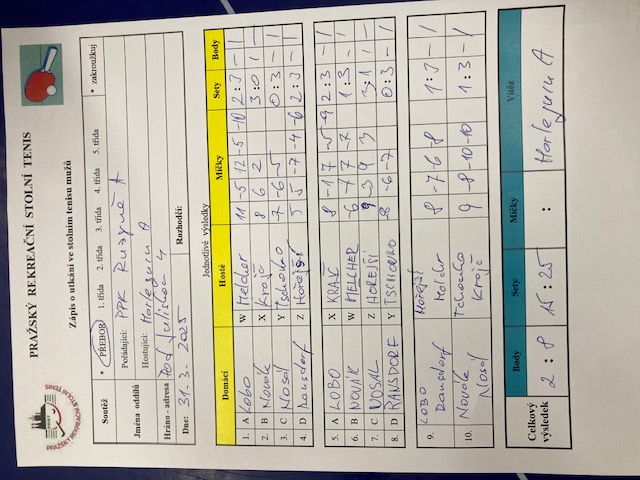 PRAŽSKÝ REKREAČNÍ STOLNÍ TENIS
Zápis o utkání ve stolním tenisu mužů
Soutěž * PŘEBOR 1. třída 2. třída 3. třída 4. třída 5. třída * zakroužkuj
Jména oddílů Pořádající: PPK Ruzyně A
Hostující: Horleguru A
Hráno - adresa Pod Juliskou 4
Dne: 31.3.2025 Rozhodčí:
Jednotlivé výsledky
Domácí Hosté Míčky Sety Body
1. A LOBO W Melcher 11 -5 12 -5 -10 2:3 - 1
2. B Novák X Krajč 8 6 2 3:0 1 -
3. C Nosal Y -7 -6 -5 0:3 - 1
4. D Z Horejší 5 5 -7 -4 -6 2:3 - 1
5. A LOBO X KRAJČ 8 -1 7 -5 -9 2:3 - 1
6. B NOVÁK W MELCHER -6 -7 7 1:3 - 1
7. C NOSAL Z HOŘEJŠÍ 9 -3 9 3 3:1 1 -
8. D Y -8 -6 -7 0:3 - 1
9. LOBO Hořejší 8 -7 -6 -8 1:3 - 1
Melcher
10. Novák 9 -8 -10 -10 1:3 - 1
Nosal Krajč
Celkový výsledek Body Sety Míčky Vítěz
2:8 15:25 : Horleguru A